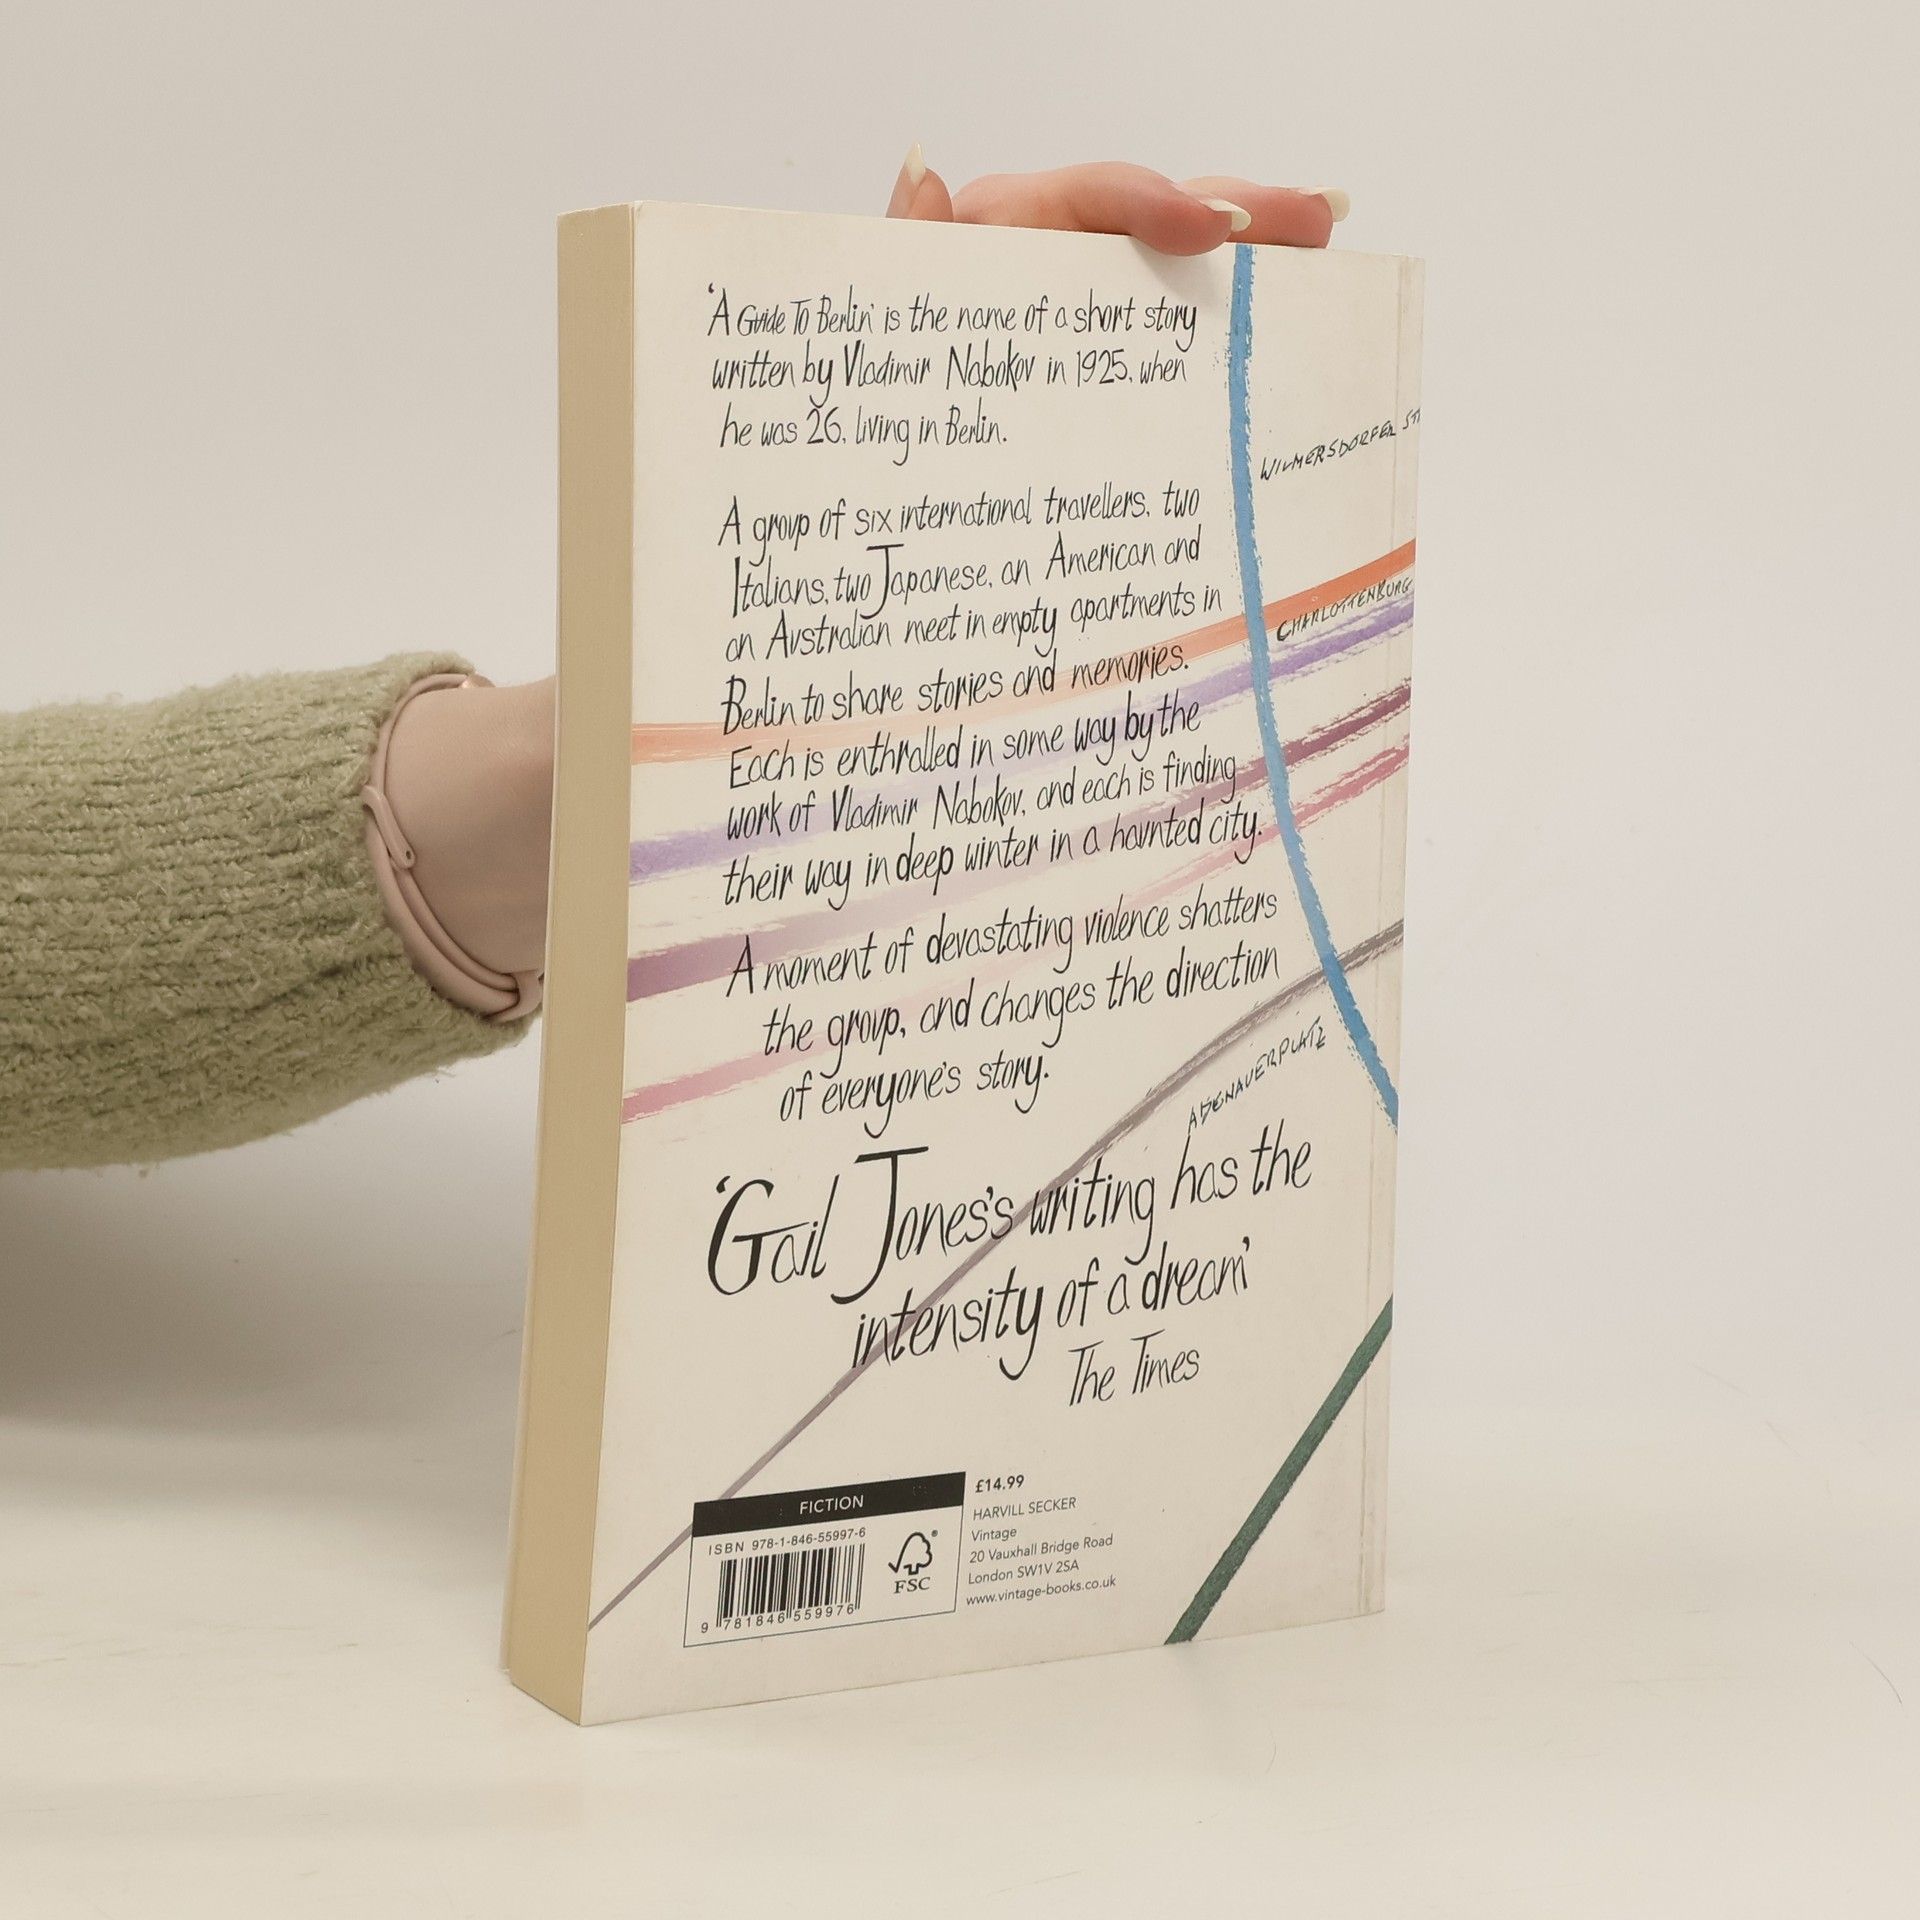 ‘A Guide To Berlin’ is the name of a short story
written by Vladimir Nabokov in 1925, when
he was 26, living in Berlin.
A group of six international travellers, two
Italians, two Japanese, an American and
an Australian meet in empty apartments in
Berlin to share stories and memories.
Each is enthralled in some way by the
work of Vladimir Nabokov, and each is finding
their way in deep winter in a haunted city.
A moment of devastating violence shatters
the group, and changes the direction
of everyone's story.
‘Gail Jones's writing has the
intensity of a dream’
The Times
WILMERSDORFER ST
CHARLOTTENBURG
ADENAUERPLATZ
FICTION
ISBN 978-1-846-55997-6
9 781846 559976
FSC
£14.99
HARVILL SECKER
Vintage
20 Vauxhall Bridge Road
London SW1V 2SA
www.vintage-books.co.uk